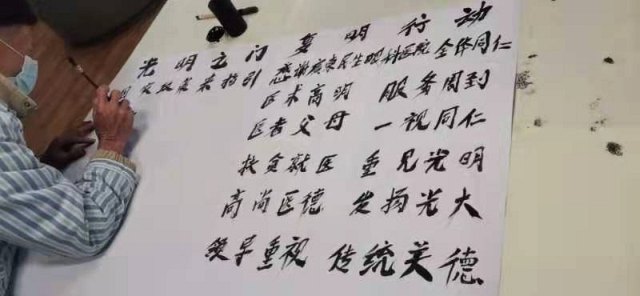 光明之门 复明行动
来指引 感谢广东民生眼科医院 全体同仁
医术高明 服务周到
医者父母 一视同仁
扶贫就医 重见光明
高尚医德 发扬光大
领导重视 传统美德